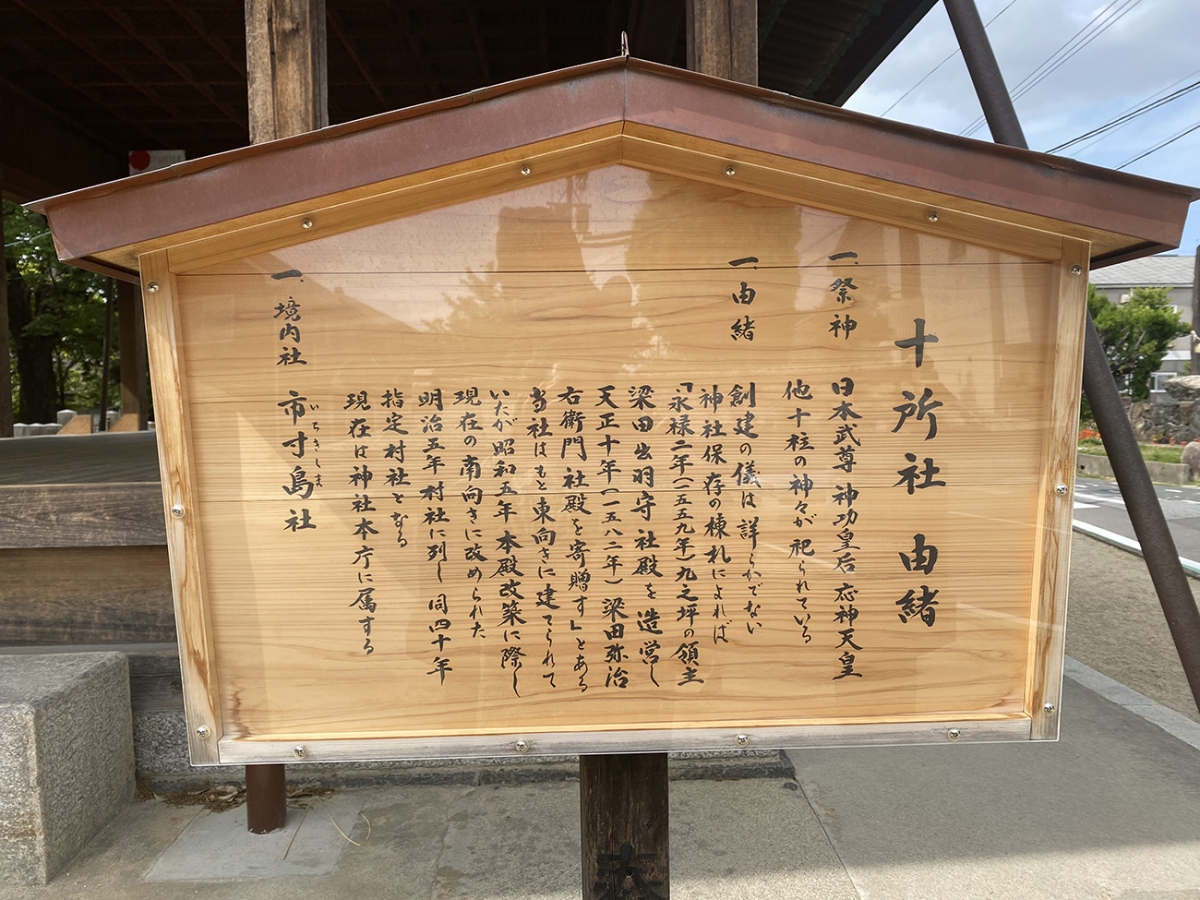 十所社 由緒
一、祭神
日本武尊 神功皇后 応神天皇
他十柱の神々が祀られている
一、由緒
創建の儀は詳らかでない
神社保存の棟札によれば
「永禄二年(一五五九年)九之坪の領主
梁田出羽守社殿を造営し
天正十年(一五八二年)梁田弥治
右衛門社殿を寄贈す」とある
当社はもと東向きに建てられて
いたが昭和五年本殿改築に際し
現在の南向きに改められた
明治五年村社に列し 同四十年
指定村社となる
現在は神社本庁に属する
一、境内社 市寸島社
いちきしま